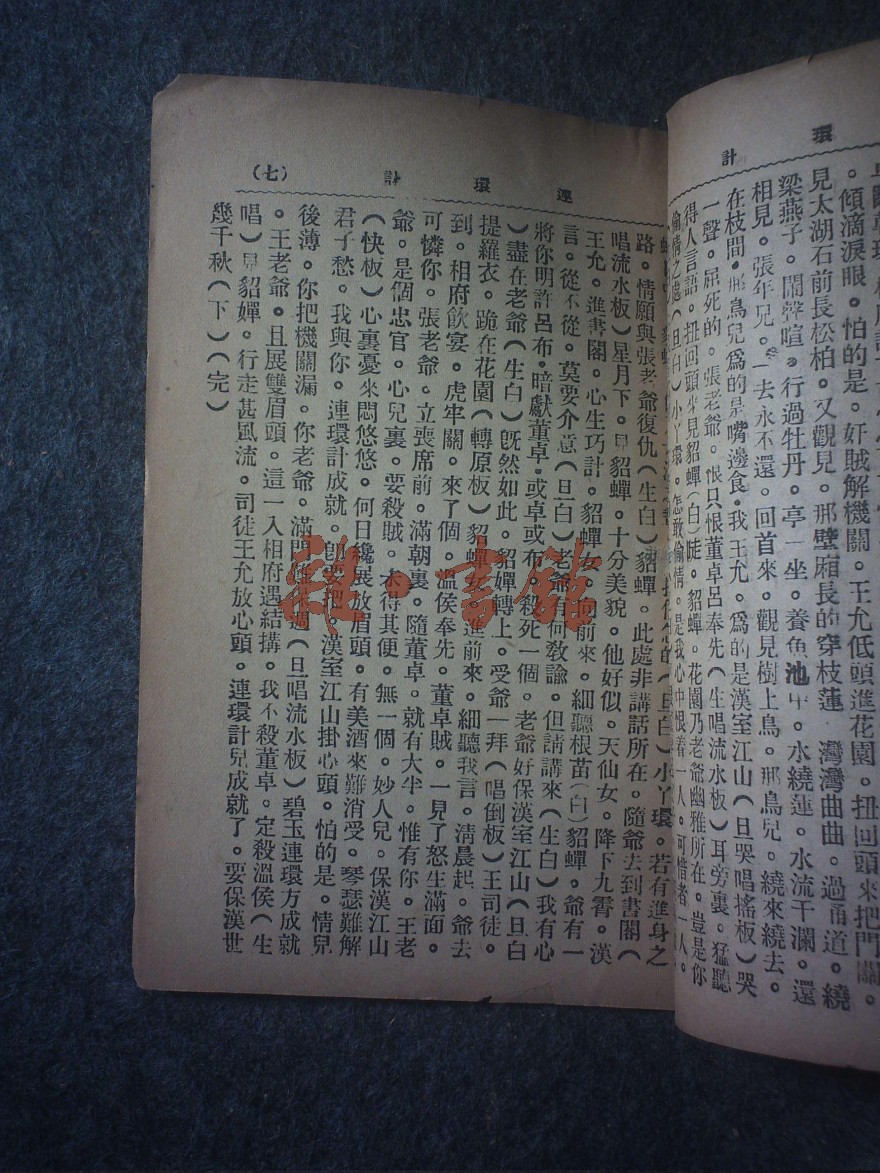 環
計
。傾滴淚眼。怕的是。奸賊解機關。王允低頭進花園。扭回頭來把門關。
見太湖石前長松柏。又觀見。那壁廂長的穿枝蓮 灣灣曲曲。過甬道。繞
梁燕子。閙聲喧。行過牡丹。亭 坐。養魚池 。水繞蓮。水流干瀾。還
相見。張年兄。一去永不還。回首來。觀見樹上鳥。那鳥兒。繞來繞去。
在枝間。那鳥兒爲的是嘴邊食。我王允。爲的是漢室江山(旦哭唱搖板)哭
一聲。屈死的。張老爺。恨只恨董卓呂奉先(生唱流水板)耳旁裏。猛聽
得人言語。扭回頭來見貂蟬(白)唗。貂蟬。花園乃老爺幽雅所在。豈是你
偷情之處(旦白)小丫環。怎敢偷情。是我心中恨着一人。可惜者一人。
連環計
(七)
(旦白)小丫環。若有進身之
路。情願與張老爺復仇(生白)貂蟬。此處非講話所在。隨爺去到書閣(
唱流水板)星月下。見貂蟬。十分美貌。他好似。天仙女。降下九霄。漢
王允。進書閣。心生巧計。貂蟬女。 前來。細聽根苗(白)貂蟬。爺有一
言。從不從。莫要介意(旦白)老爺有何敎諭。但請講來(生白)我有心
將你明許呂布。暗獻董卓。或卓或布。殺死一個。老爺好保漢室江山(旦白
)盡在老爺(生白)旣然如此。貂嬋轉上。受爺一拜(唱倒板)王司徒。
提羅衣。跪在花園(轉原板)貂蟬女 進前來。細聽我言。淸晨起。爺去
到。相府飲宴。虎牢關。來了個。溫侯奉先。董卓賊。一見了怒生滿面。
可憐你。張老爺。立喪席前。滿朝裏。隨董卓。就有大半。惟有你。王老
爺。是個忠官。心兒裏。要殺賊。不得其便。無一個。妙人兒。保漢江山
(快板)心裏憂來悶悠悠。何日纔展放眉頭。有美酒來難消受。琴瑟難解
君子愁。我與你。連環計成就。卽要把。漢室江山掛心頭。怕的是。情兒
後薄。你把機關漏。你老爺。滿門 週(旦唱流水板)碧玉連環方成就
。王老爺。且展雙眉頭。這一入相府遇結搆。我不殺董卓。定殺溫侯(生
唱)見貂嬋。行走甚風流。司徒王允放心頭。連環計兒成就了。要保漢世
幾千秋(下)(完)
雜·書館